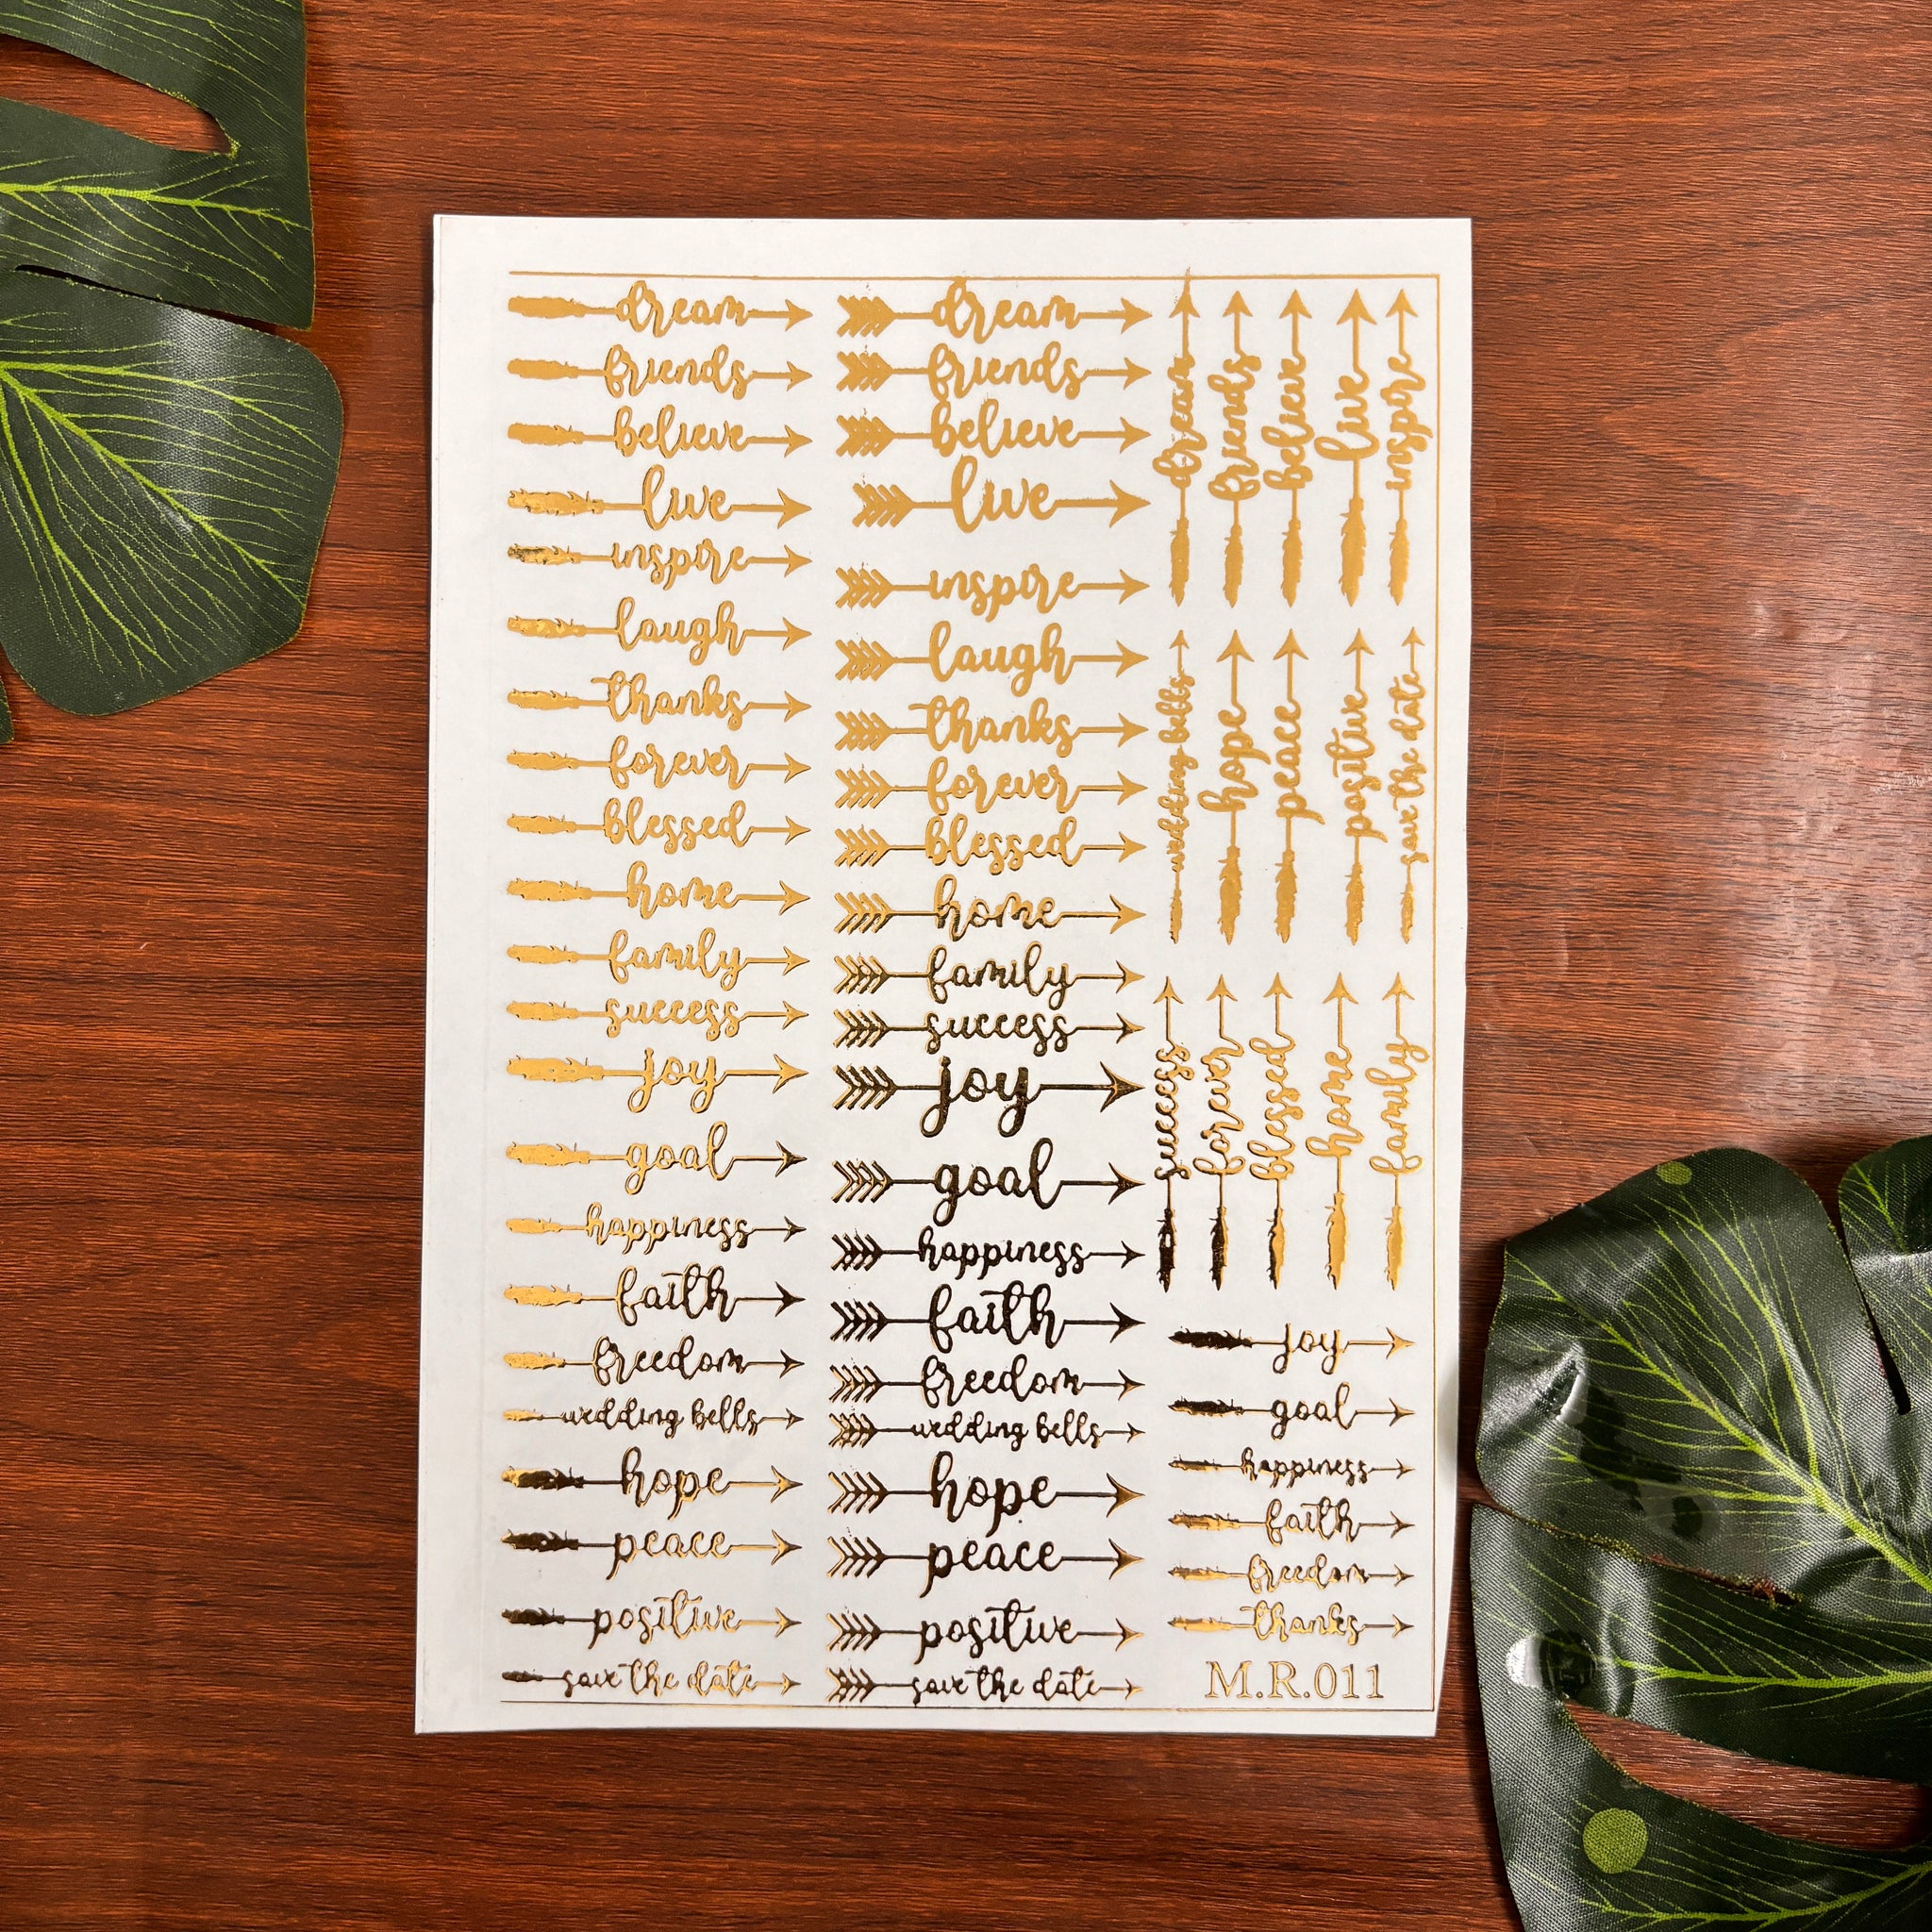 dream
friends
believe
live
inspire
laugh
thanks
forever
blessed
home
family
success
joy
goal
happiness
faith
freedom
wedding bells
hope
peace
positive
save the date
dream
friends
believe
live
inspire
laugh
thanks
forever
blessed
home
family
success
joy
goal
happiness
faith
freedom
wedding bells
hope
peace
positive
save the date
dream
friends
believe
live
inspire
wedding bells
hope
peace
positive
save the date
success
forever
blessed
home
family
joy
goal
happiness
faith
freedom
thanks
M.R.011